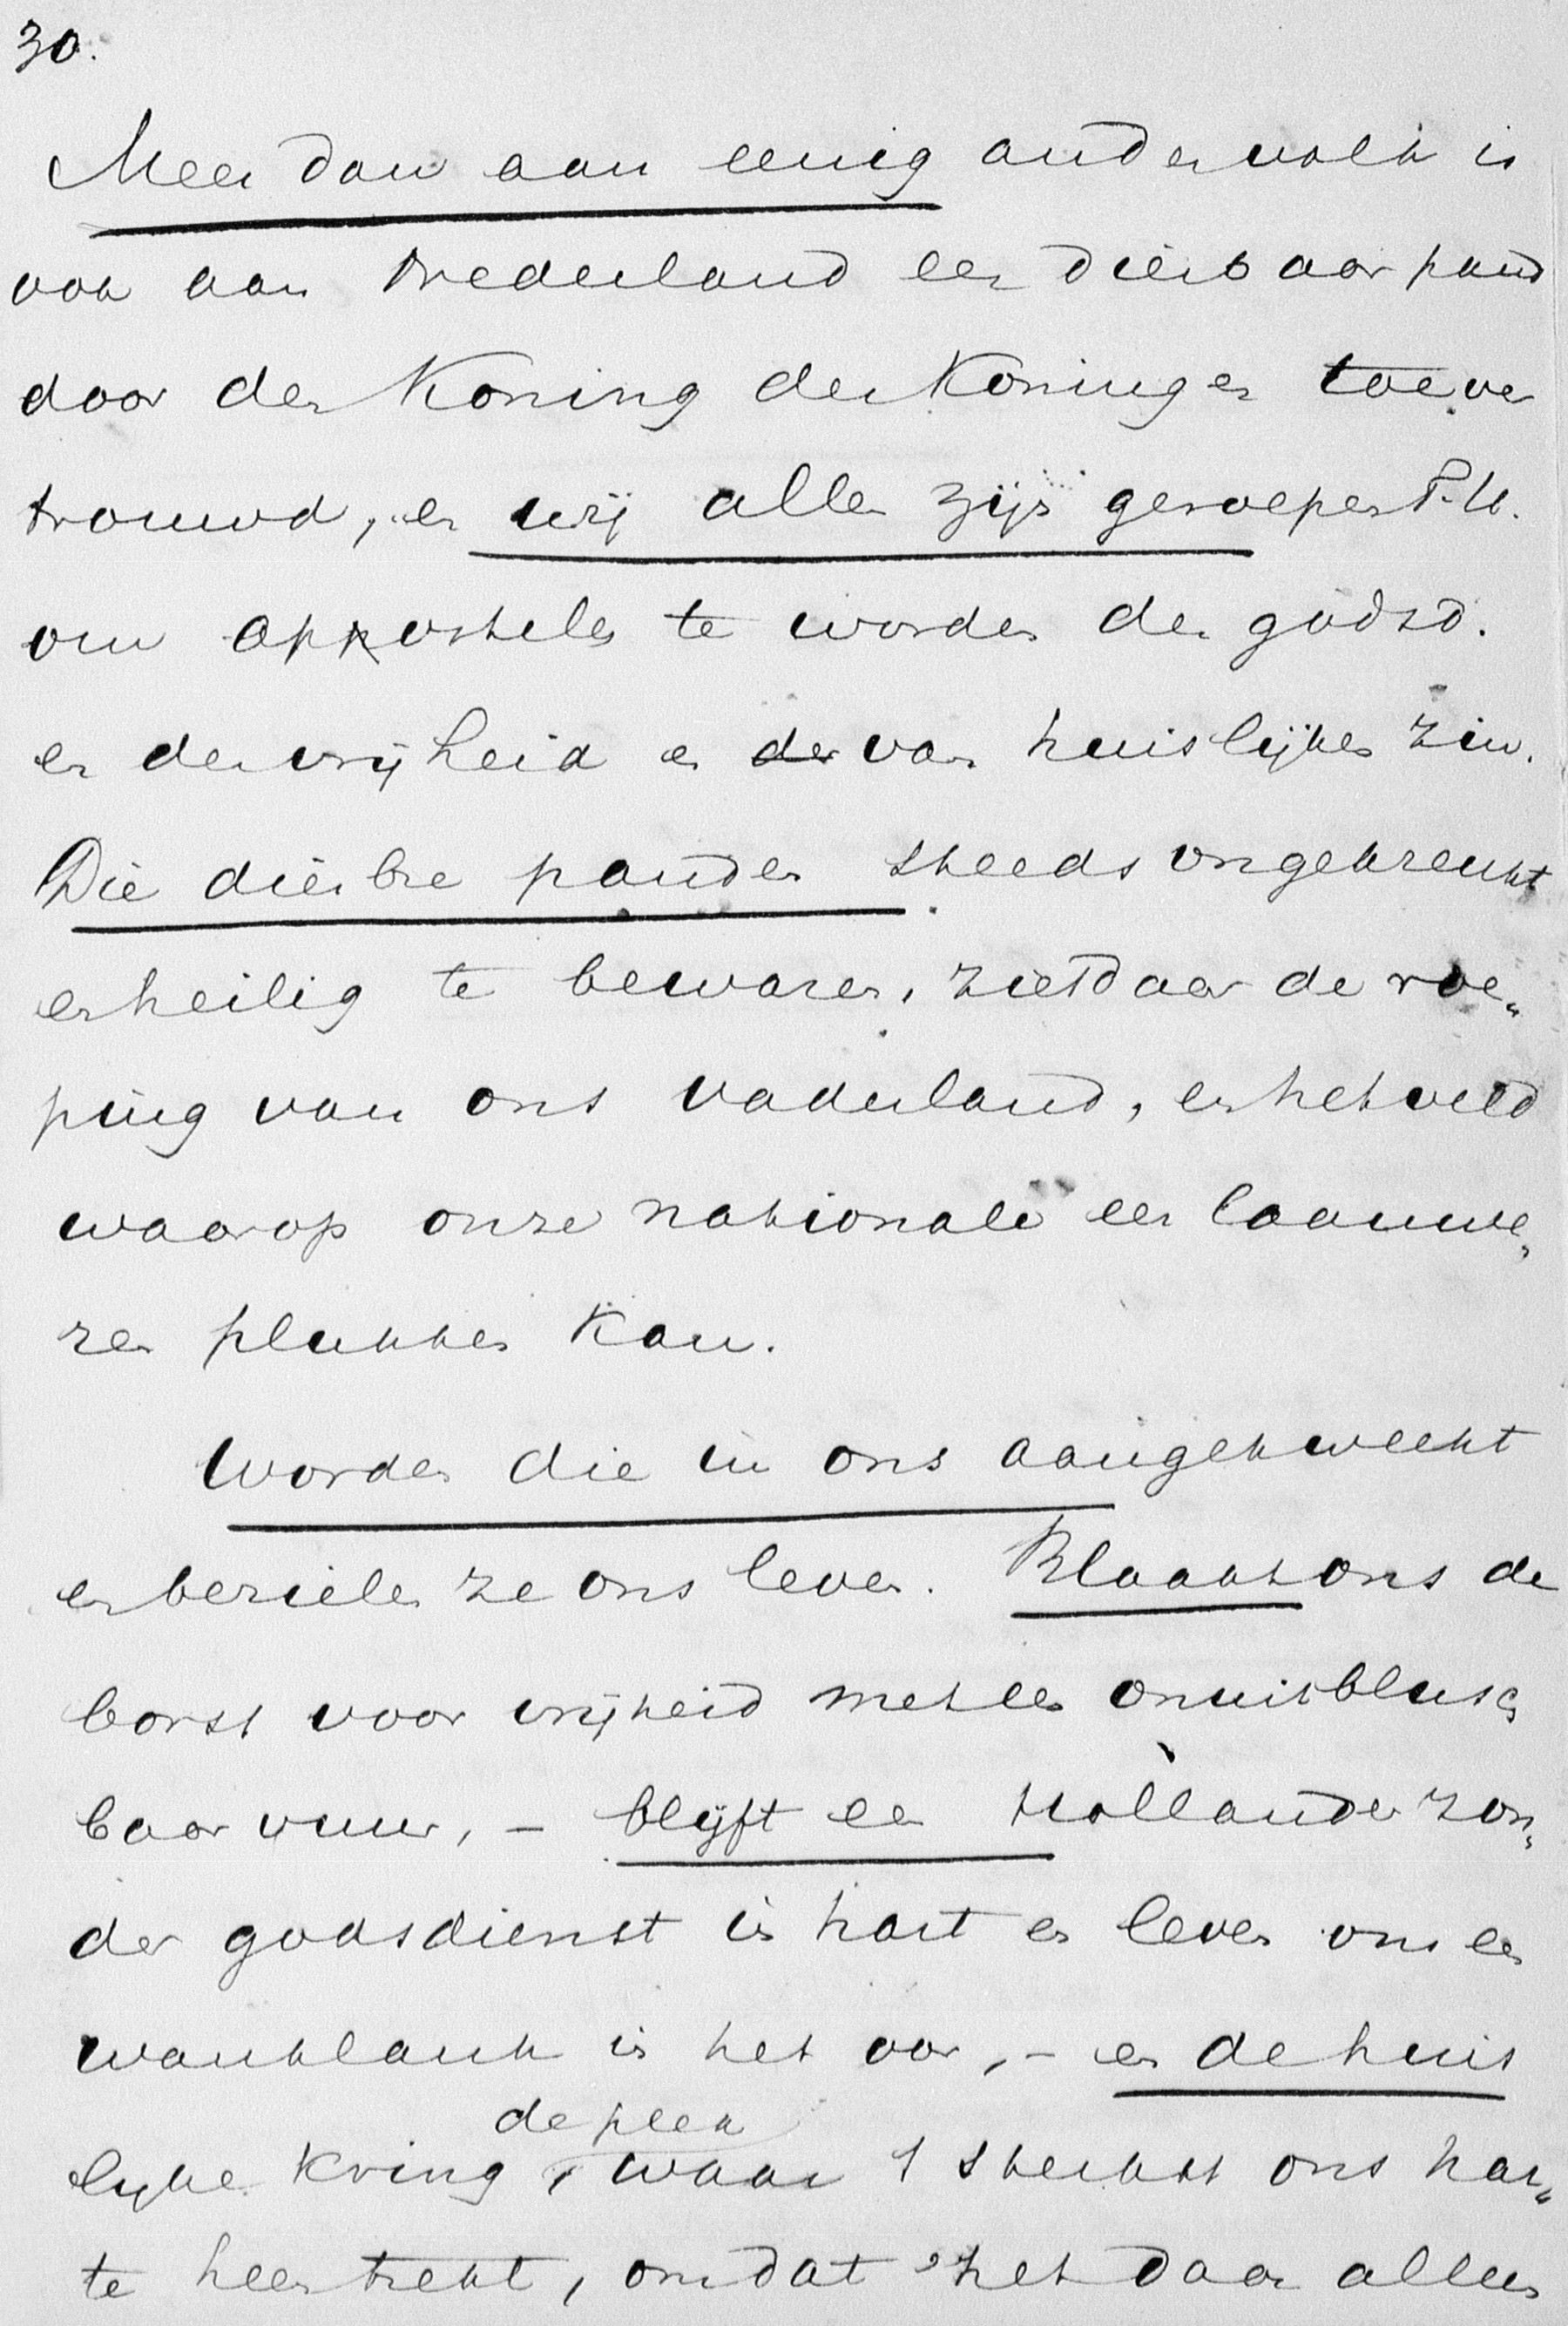 30.
Meer dan aan eenig ander volk is
ook aan Nederland een dierbaar pand
door den Koning der Koningen toever
trouwd, en wij allen zijn geroepen T.H.
om appostelen te worden der godsd.
en der vrijheid en der van huislijken zin.
Die dierbre panden steeds ongekreukt
en heilig te bewaren, ziet daar de roe„
ping van ons vaderland, en het veld
waarop onze nationale eer laauwe„
ren plukken kan.
Worden die in ons aangekweekt
en bezielen ze ons leven. Blaakt ons de
borst voor vrijheid met een onuitblusch„
baar vuur, – blijft een Hollander zon„
der godsdienst in hart en leven ons een
wanklank in het oor, – en de huis
de plek
lijke kring, waar 't sterkst ons har„
te heen trekt, omdat het daar alleen